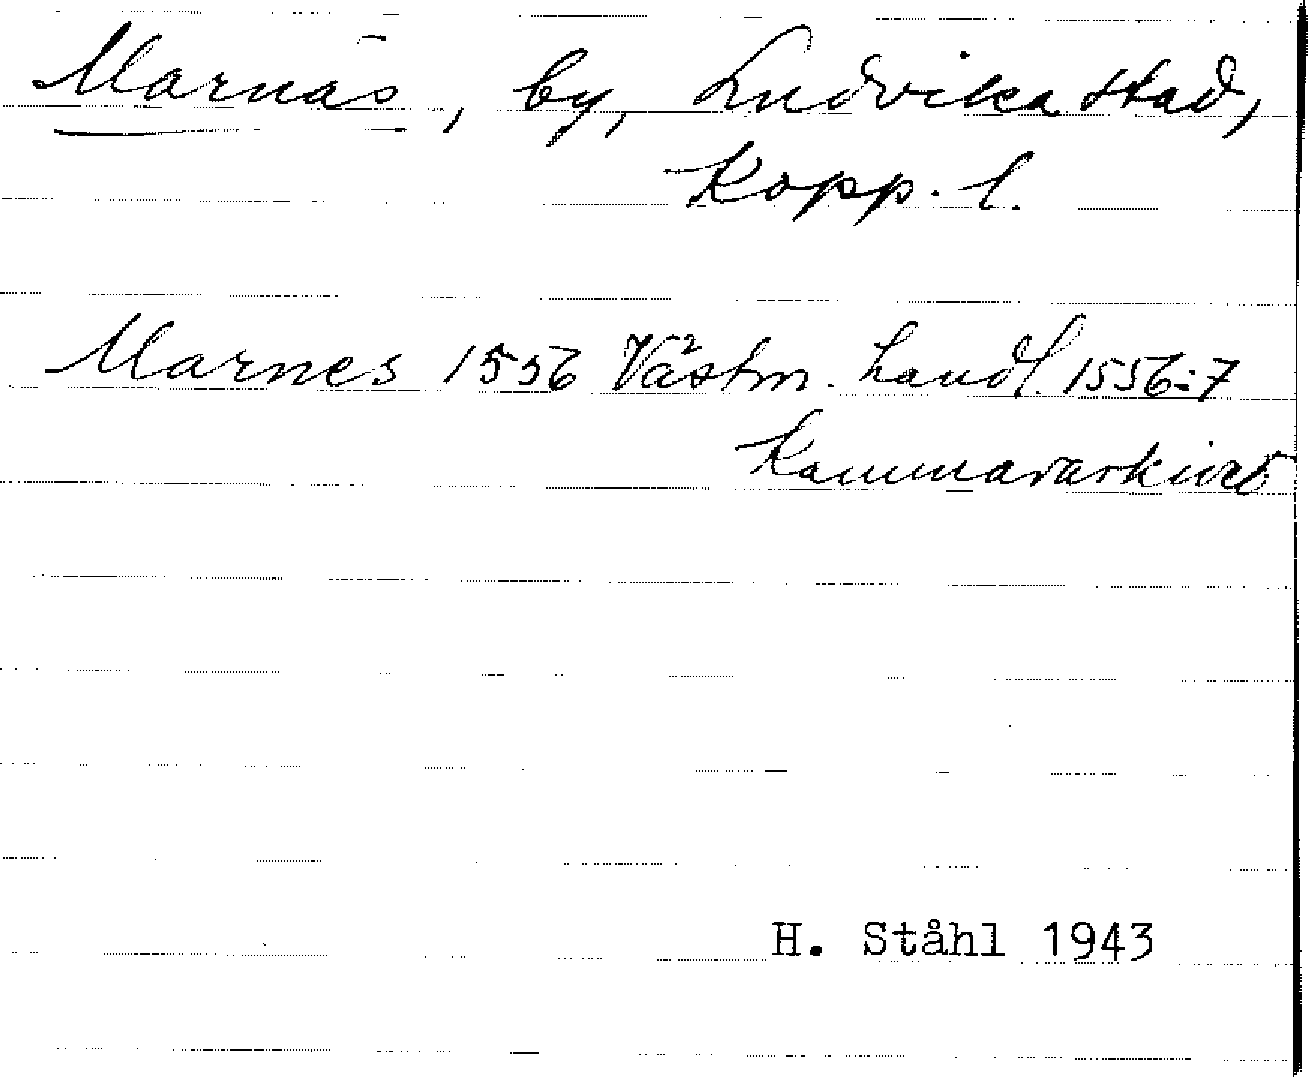 Marnäs, by, Ludvika stad,
Kopp. l.
Marnes 1556 Västm. handl. 1556:7
Kammararkivet
H. Ståhl 1943